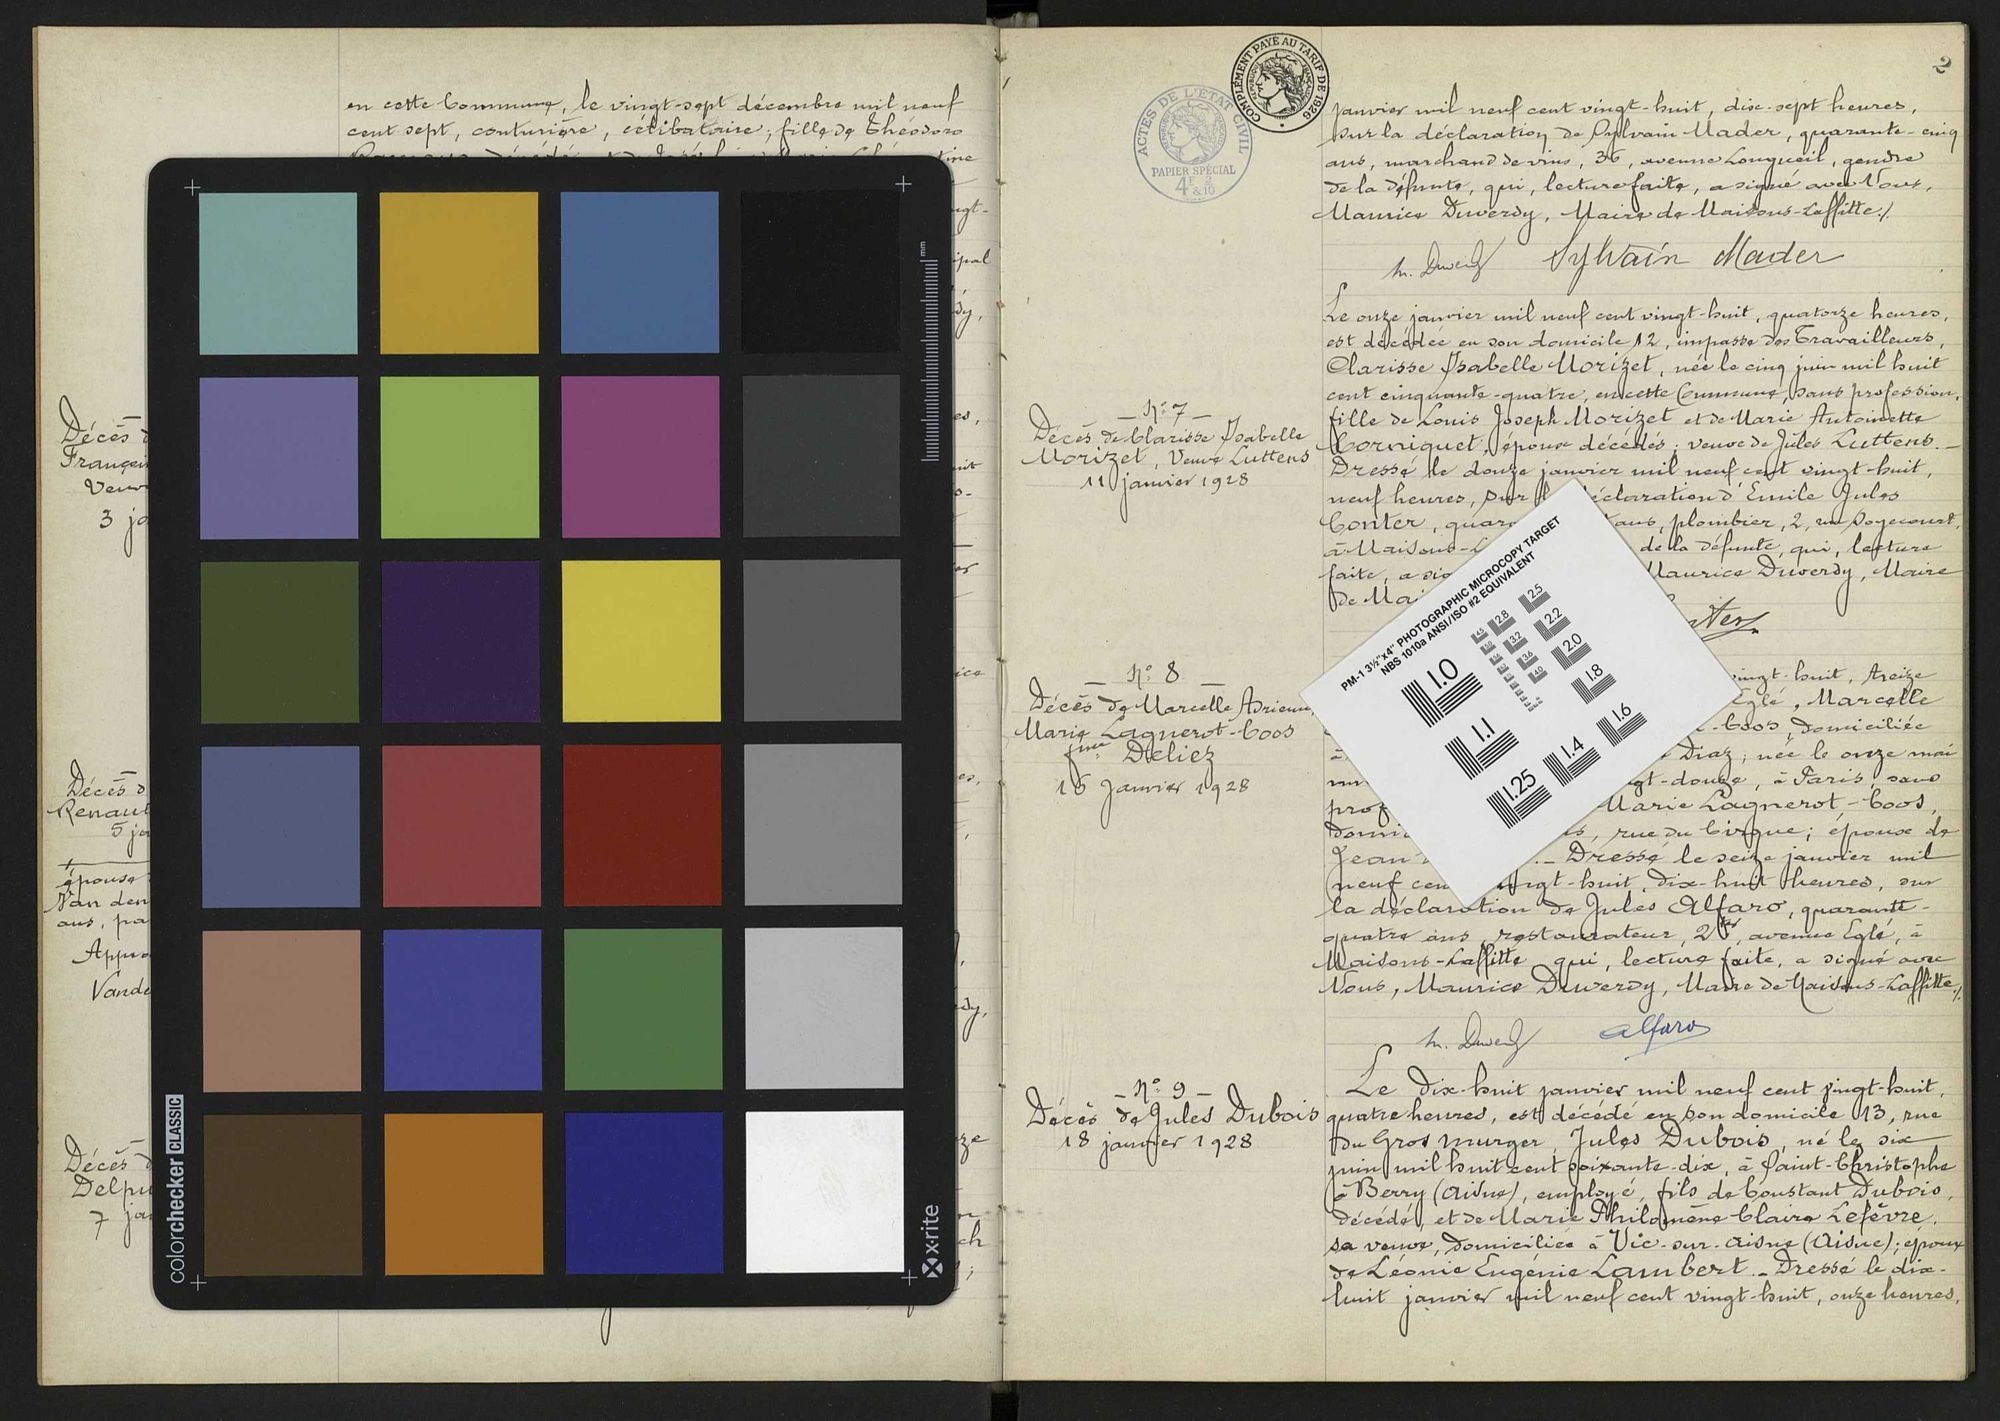 en cette Commune, le vingt-sept décembre mil neuf
cent sept, couturière, célibataire; fille de Théodore
Décès
Françoi
Veuv
3 ja
Décès d
Renaul
5 ja
épouse
Van den
ans, pa
Appro
Vande
Décès d
Delpu
7 jan
mm
colorchecker CLASSIC
x-rite
2
COMPLÉMENT PAYÉ AU TARIF DE 1926
ACTES DE L'ÉTAT CIVIL
PAPIER SPÉCIAL
4F 2/10
janvier mil neuf cent vingt-huit, dix-sept heures,
sur la déclaration de Sylvain Mader, quarante-cinq
ans, marchand de vins, 36, avenue Longueil, gendre
de la défunte, qui, lecture faite, a signé avec Nous,
Maurice Duverdy, Maire de Maisons-Laffitte ./.
M. Duverdy Sylvain Mader
— N° 7 —
Décès de Clarisse Isabelle
Morizet, Veuve Luttens
11 janvier 1928
Le onze janvier mil neuf cent vingt-huit, quatorze heures,
est décédée en son domicile 12, impasse des Travailleurs,
Clarisse Isabelle Morizet, née le cinq juin mil huit
cent cinquante-quatre, en cette Commune, sans profession,
fille de Louis Joseph Morizet et de Marie Antoinette
Corniquet, époux décédés; veuve de Jules Luttens. —
Dressé le douze janvier mil neuf cent vingt-huit,
neuf heures, sur la déclaration d'Emile Jules
Conter, quara ans, plombier, 2, rue Soyecourt,
à Maisons-L de la défunte, qui, lecture
faite, a sig Maurice Duverdy, Maire
de Mai
nter
PM-1 3½"x4" PHOTOGRAPHIC MICROCOPY TARGET
NBS 1010a ANSI/ISO #2 EQUIVALENT
1.0
1.1
1.25
1.4
1.6
1.8
2.0
2.2
2.5
2.8
3.2
3.6
4.0
4.5
— N° 8 —
Décès de Marcelle Adrienne
Marie Lagnerot-Coos
fme Deliez
16 Janvier 1928
vingt-huit, treize
Eglé, Marcelle
-Coos, domiciliée
à Diaz; née le onze mai
mi gt-douze, à Paris, sans
prof Marie Lagnerot-Coos,
domi s, rue du Cirque; épouse de
Jean . — Dressé le seize janvier mil
neuf cen vingt-huit, dix-huit heures, sur
la déclaration de Jules Alfaro, quarante-
quatre ans, restaurateur, 2bis, avenue Eglé, à
Maisons-Laffitte qui, lecture faite, a signé avec
Nous, Maurice Duverdy, Maire de Maisons-Laffitte ./.
M. Duverdy Alfaro
— N° 9 —
Décès de Jules Dubois
18 janvier 1928
Le dix-huit janvier mil neuf cent vingt-huit,
quatre heures, est décédé en son domicile 13, rue
du Gros Murger, Jules Dubois, né le six
juin mil huit cent soixante-dix, à Saint-Christophe
à Berry (Aisne), employé, fils de Constant Dubois,
décédé, et de Marie Philomène Claire Lefèvre,
sa veuve, domiciliée à Vic-sur-Aisne (Aisne); époux
de Léonie Eugénie Lambert. — Dressé le dix-
huit janvier mil neuf cent vingt-huit, onze heures,